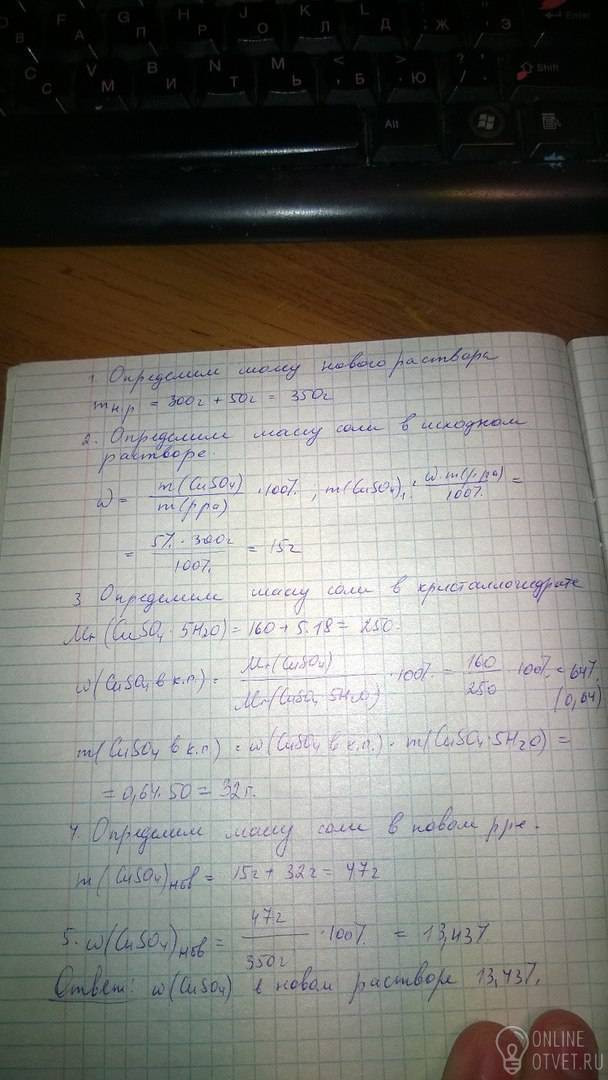 Enter
Ф Ы В А П Р О Л Д Ж Э
С М И Т Ь Б Ю
Shift
Alt
1 Определим массу нового раствора
mн.р = 300г + 50г = 350г
2. Определим массу соли в исходном
растворе.
ω = m(CuSO4) / m(р-ра) · 100%, m(CuSO4)1 = ω·m(р-ра) / 100% =
= 5% · 300г / 100% = 15г
3 Определим массу соли в кристаллогидрате
Mr (CuSO4 · 5H2O) = 160 + 5·18 = 250.
ω(CuSO4 в к.г.) = Mr(CuSO4) / Mr(CuSO4 5H2O) · 100% = 160 / 250 · 100% = 64%
(0,64)
m(CuSO4 в к.г.) = ω(CuSO4 в к.г.) · m(CuSO4·5H2O) =
= 0,64·50 = 32г.
4. Определим массу соли в новом р-ре.
m(CuSO4)нов = 15г + 32г = 47г
5. ω(CuSO4)нов = 47г / 350г · 100% = 13,43%
Ответ: ω(CuSO4) в новом растворе 13,43%.
ONLINE
OTVET.RU